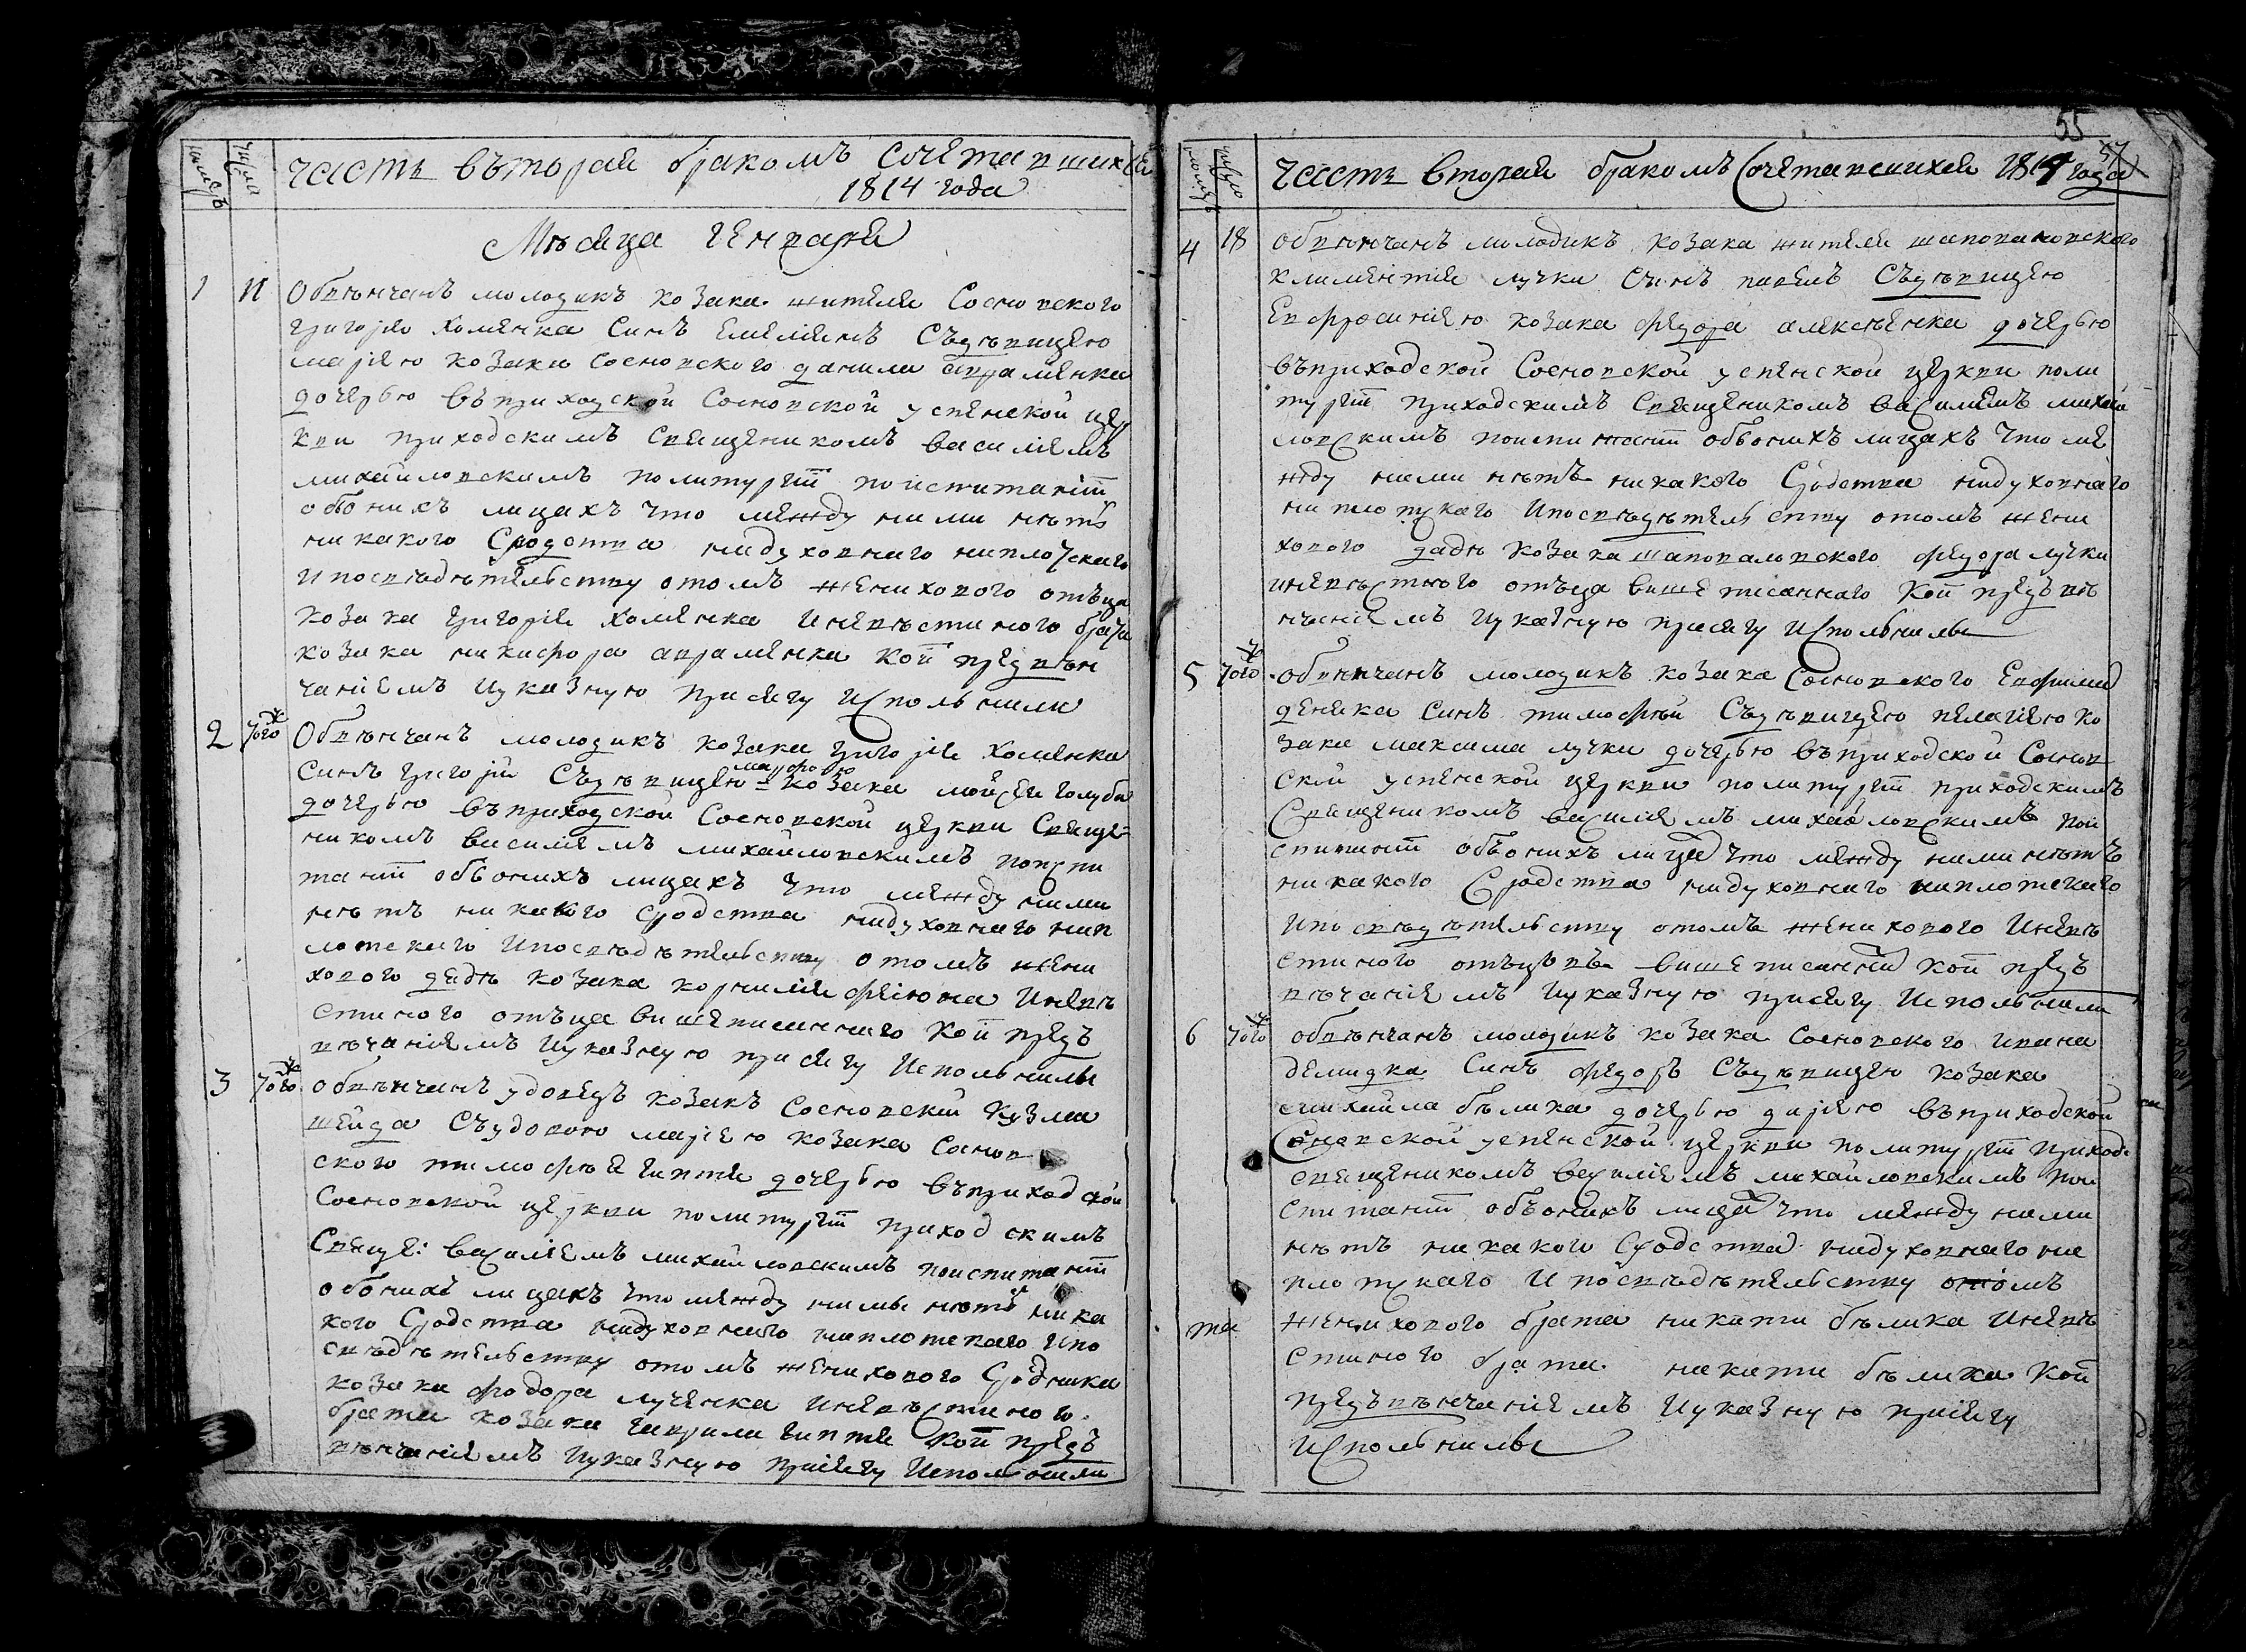 часть въторая бракомъ Сочетавшихся
1814 года
нумеръ
число
Мѣсяца Генваря
1 11 Обвѣнчанъ молодикъ козака жителя Сосновского
григорія хоменка Синъ Емеліянъ Съдѣвицею
маріею козаки сосновского данила авраменка
дочерью въприходской Сосновской успенской цер
кви приходскимъ Священикомъ василіемъ
михайловскимъ политургіи поиспитаніи
обонихъ лицахъ что между ними нѣтъ
никакого Сродства нидуховнаго ниплотскаго
ипосвѣдѣтельству отомъ женихового отъца
козака григорія хоменка иневѣстиного брата
козака никифора авраменка кои предвѣн
чаніемъ иуказную присягу Исполънили
2 того ж Обвѣнчанъ молодикъ козака григорія хоменка
Синъ григорій Съдѣвицею марфою козака мойсея голуба
дочерью въприходской Сосновской церкви Священ
никомъ василіемъ михайловскимъ поиспи
таніи обонихъ лицахъ что между ними
нѣтъ никакого сродства нидуховнаго нип
лотскаго ипосвѣдѣтельству отомъ жени
хового дедѣ козака корнилія Иневѣ
стиного отъца вишеписаннаго кои предъ
вѣчаніемъ иуказную присягу Исполънили
3 того ж Обвѣнчанъ удовецъ козакъ Сосновскій Кузма
шейда Съудовою маріею козака Соснов
ского тимофѣя дочерью въприходской
Сосновской церкви политургіи приходскимъ
Священ: василіемъ михайловскимъ поиспитаніи
обонихъ лицахъ что между ними нѣтъ ника
кого Сродства нидуховнаго ниплотскаго ипо
свѣдѣтельству отомъ женихового Сродника
козака фодора лученка иневѣстиного
брата козака гаврила кои предъ
вѣнчаніемъ иуказную присягу Исполънили
55
57
часть вторая бракомъ Сочетавшихся 1814 года
4 18 Обвѣнчанъ молодикъ козака жителя шаповаловского
климентія лучки Синъ павелъ Съдѣвицею
Евфросиніею козака федора алексѣенка дочерью
въприходской Сосновской успенской церкви поли
тургіи приходскимъ Священикомъ василіемъ михай
ловскимъ поиспитаніи обонихъ лицахъ что ме
жду ними нѣтъ никакого Сродства нидуховнаго
ниплотскаго ипосвѣдѣтельству отомъ жени
хового дядѣ козака шаповаловского федора лучки
иневѣстного отъца вишеписаннаго кои предъвѣ
нчаніемъ иуказную присягу Исполънили
5 того ж обвѣнчанъ молодикъ козака Сосновского Евфима
деняка Синъ тимофѣй Съдѣвицею пелагіею ко
зака максима лучки дочерью въприходской Соснов
ской успенской церкви политургіи приходскимъ
Священикомъ василіемъ михайловскимъ пои
спитаніи обонихъ лица что между ними нѣтъ
никакого Сродства нидуховнаго ниплотскаго
ипосвѣдѣтельству отомъ женихового Иневѣ
стиного отъцовъ вишеписанни кои предъ
вѣчаніемъ иуказную присягу Исполънили
6 того ж обвѣнчанъ молодикъ козака Сосновского ивана
демидка Синъ федоръ Съдѣвицею козака
михайла бѣлика дочерью даріею въприходской
Сосновской успенской церкви политургіи приход:
священикомъ василіемъ михайловскимъ пои
спитаніи обонихъ лица что между ними
нѣтъ никакого Сродства нидуховнаго ни
плотскаго ипосвѣдѣтельству отомъ
женихового брата никити бѣлика Иневѣ
стиного брата никити бѣлика кои
предъвѣнчаніемъ иуказную присягу
Исполънили